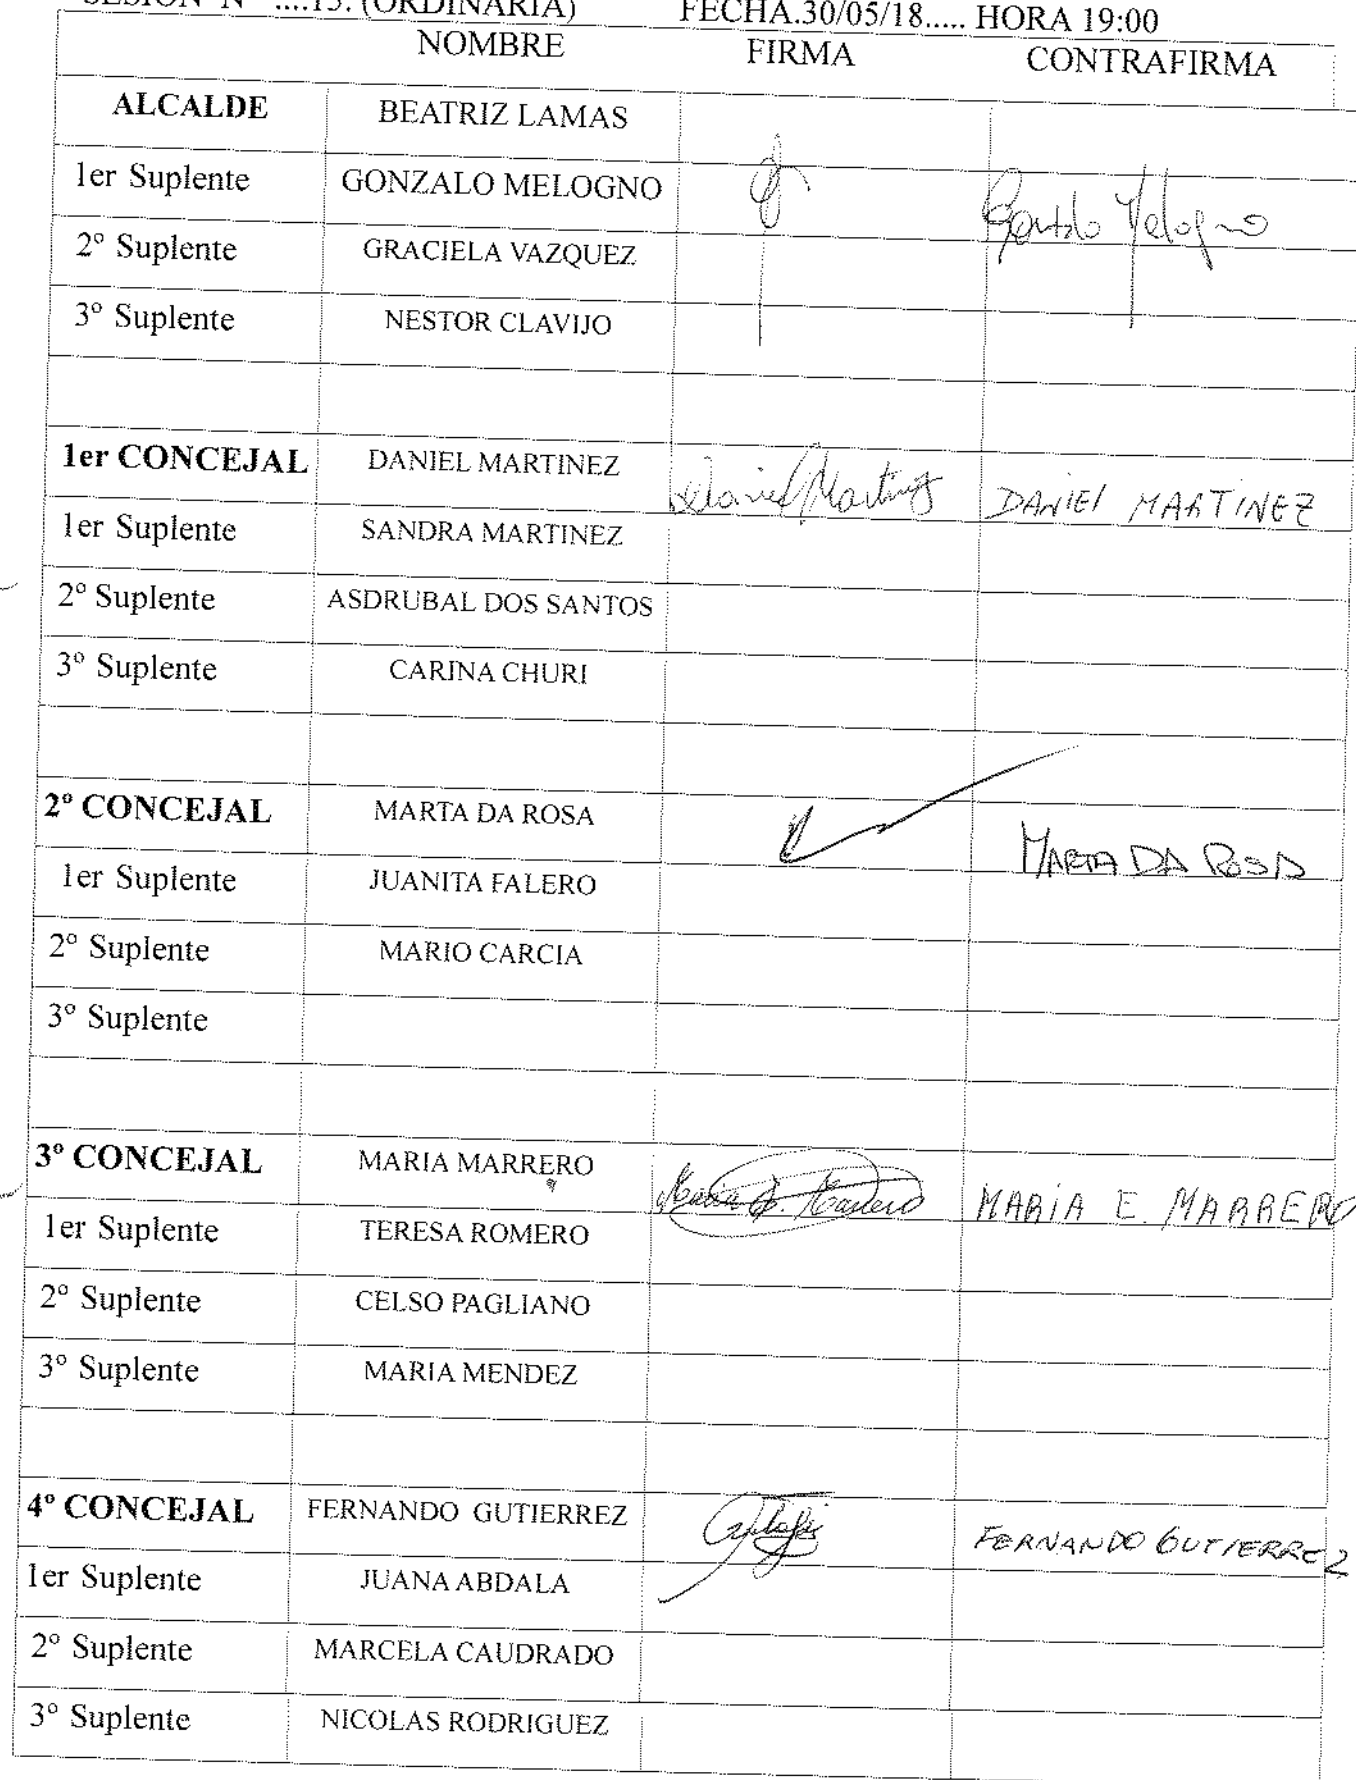 SESION N° ....15. (ORDINARIA) FECHA.30/05/18..... HORA 19:00
NOMBRE FIRMA CONTRAFIRMA
ALCALDE BEATRIZ LAMAS
1er Suplente GONZALO MELOGNO Gonzalo Melogno
2º Suplente GRACIELA VAZQUEZ
3º Suplente NESTOR CLAVIJO
1er CONCEJAL DANIEL MARTINEZ Daniel Martinez DANIEl MARTINEZ
1er Suplente SANDRA MARTINEZ
2º Suplente ASDRUBAL DOS SANTOS
3º Suplente CARINA CHURI
2º CONCEJAL MARTA DA ROSA MARTA DA ROSA
1er Suplente JUANITA FALERO
2º Suplente MARIO CARCIA
3º Suplente
3º CONCEJAL MARIA MARRERO Maria E. Marrero MARIA E. MARRERO
1er Suplente TERESA ROMERO
2º Suplente CELSO PAGLIANO
3º Suplente MARIA MENDEZ
4º CONCEJAL FERNANDO GUTIERREZ FERNANDO GUTIERREZ
1er Suplente JUANA ABDALA
2º Suplente MARCELA CAUDRADO
3º Suplente NICOLAS RODRIGUEZ